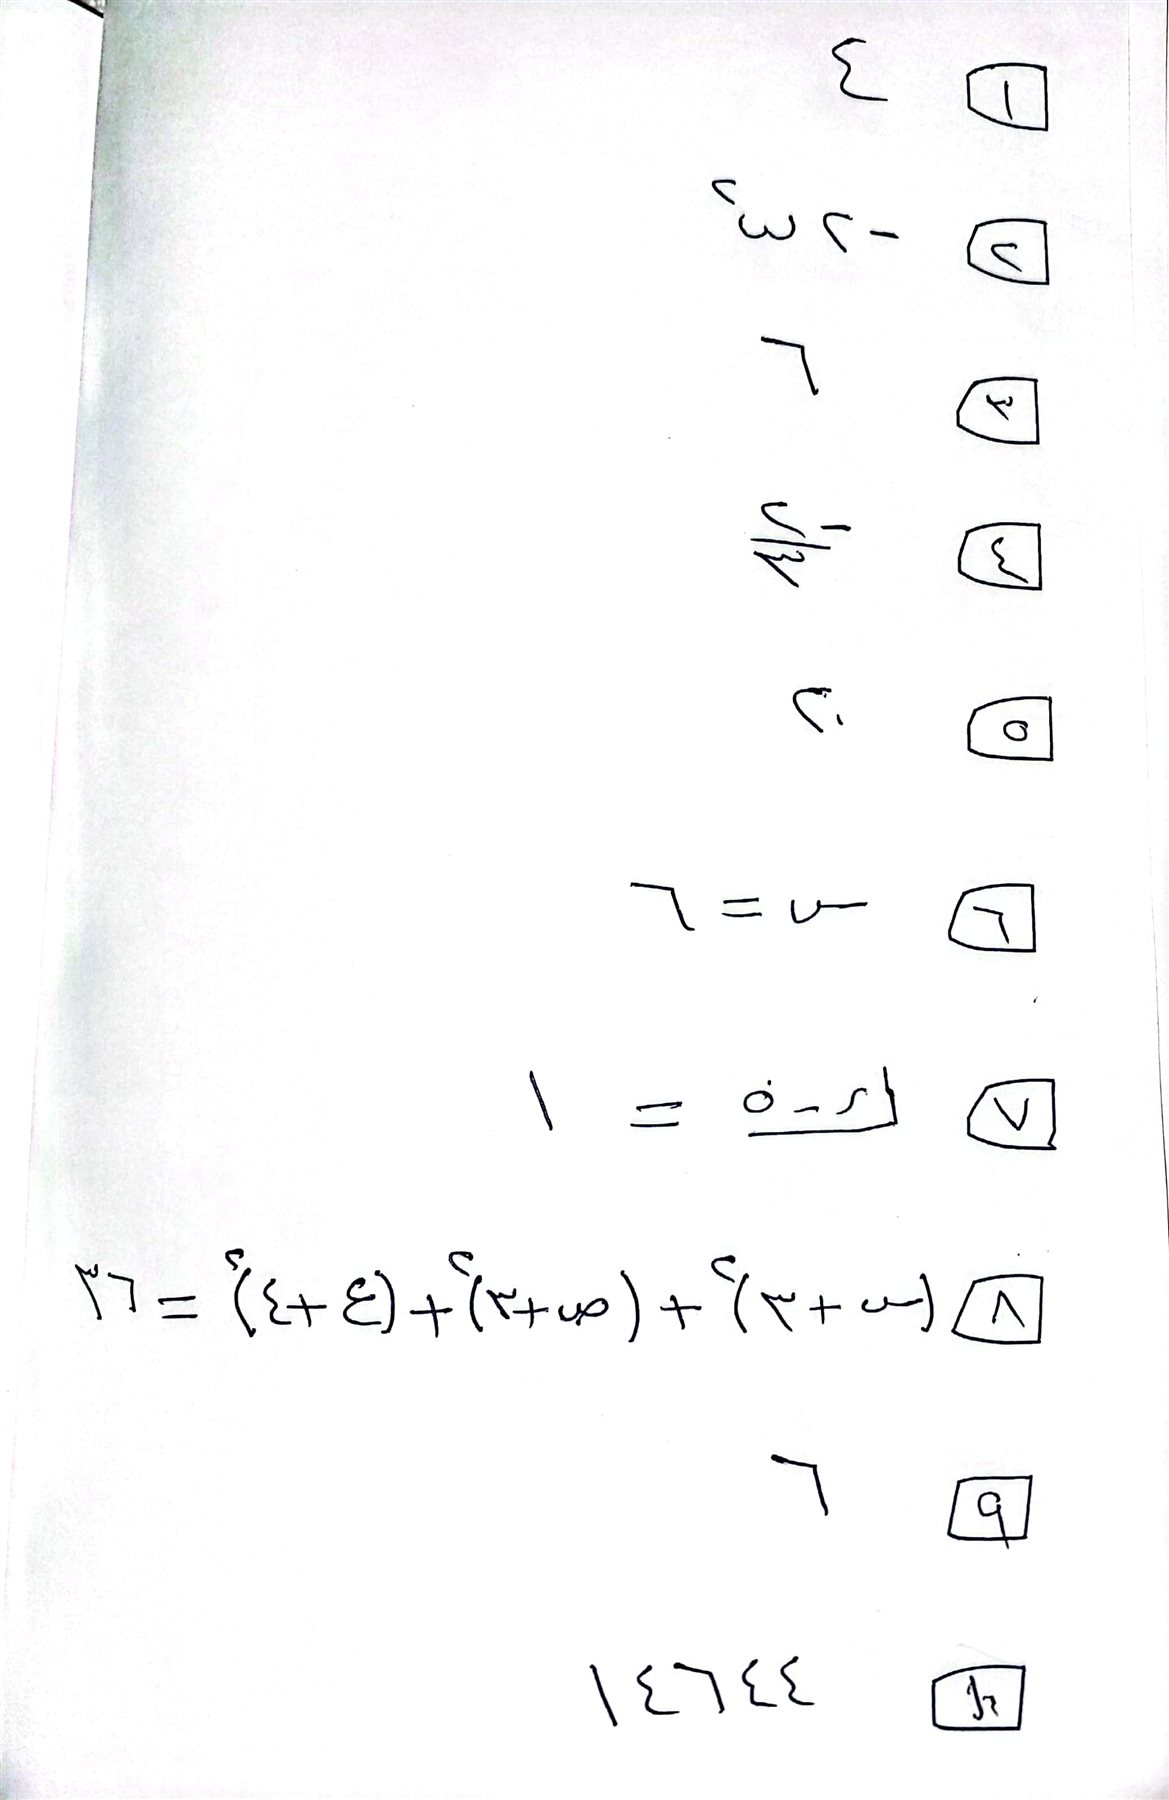 ١ ٤
٢ -٢ ω^٢
٣ ٦
٤ -٢/٣
٥ ٢
٦ س = ٦
٧ ١ = ٥-٢
٨ (س + ٣)^٢ + (ص + ٣)^٢ + (ع + ٤)^٢ = ٣٦
٩ ٦
١٤٦٤٤